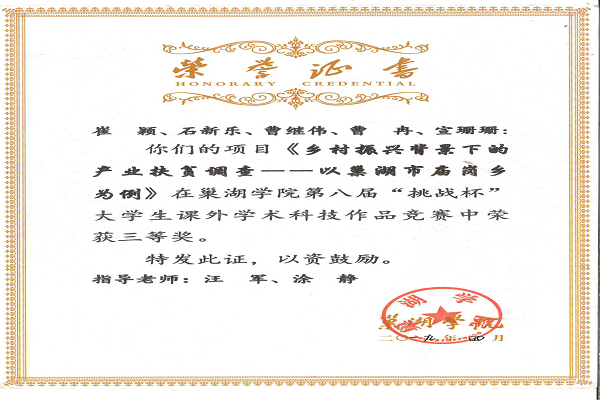 荣誉证书
HONORARY CREDENTIAL
崔 颖、石新乐、曹继伟、曹 冉、宣珊珊：
你们的项目《乡村振兴背景下的
产业扶贫调查——以巢湖市庙岗乡
为例》在巢湖学院第八届“挑战杯”
大学生课外学术科技作品竞赛中荣
获三等奖。
特发此证，以资鼓励。
指导老师：汪 军、涂 静
巢湖学院
二〇一九年四月